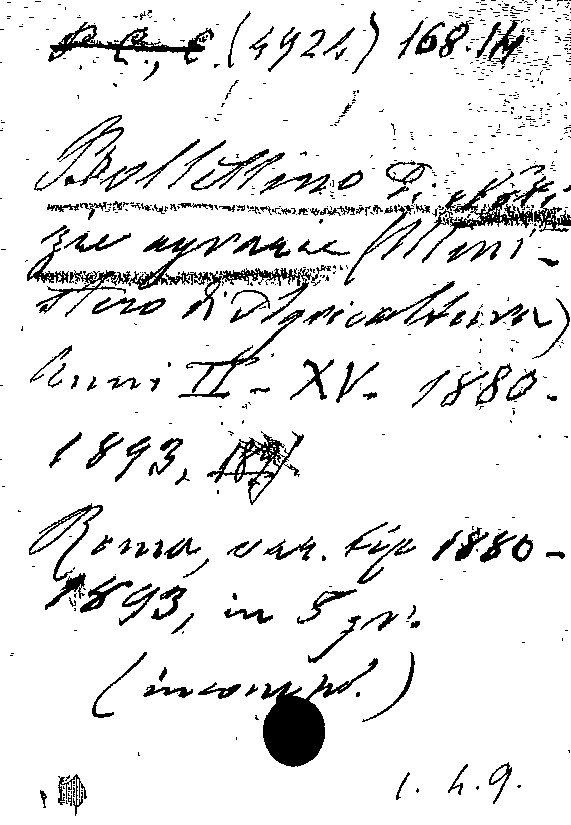 (4924) 168.14
Bollettino di Noti
zie agrarie (Mini-
stero di Agricoltura)
Anni II - XV. 1880-
1893,
Roma, var. tip 1880-
1893, in 8 gr.
(incompl.)
1. 4. 9.